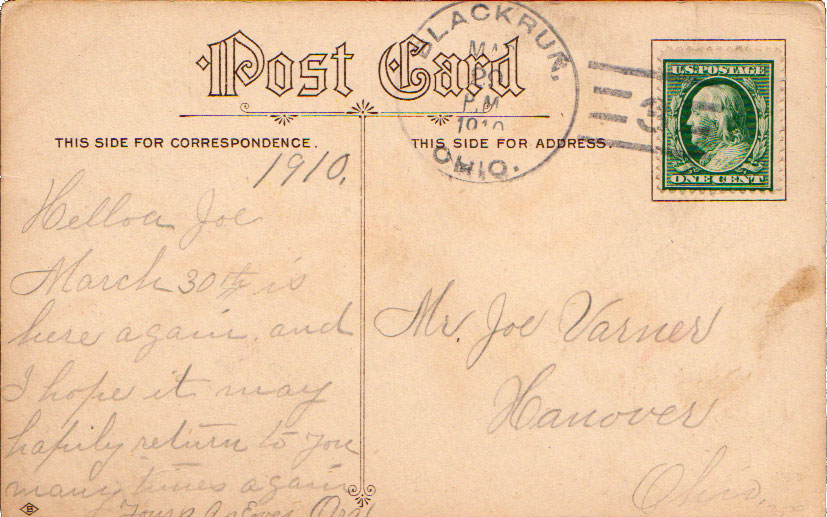 Post Card
BLACKRUN,
MAR
P.M.
1910
OHIO.
U.S. POSTAGE
ONE CENT
THIS SIDE FOR CORRESPONDENCE.
THIS SIDE FOR ADDRESS.
1910.
Helloa Joe
March 30th is
here again, and
I hope it may
hapily return to you
many times again
Yours as Ever
Mr. Joe Varner
Hanover
Ohio.